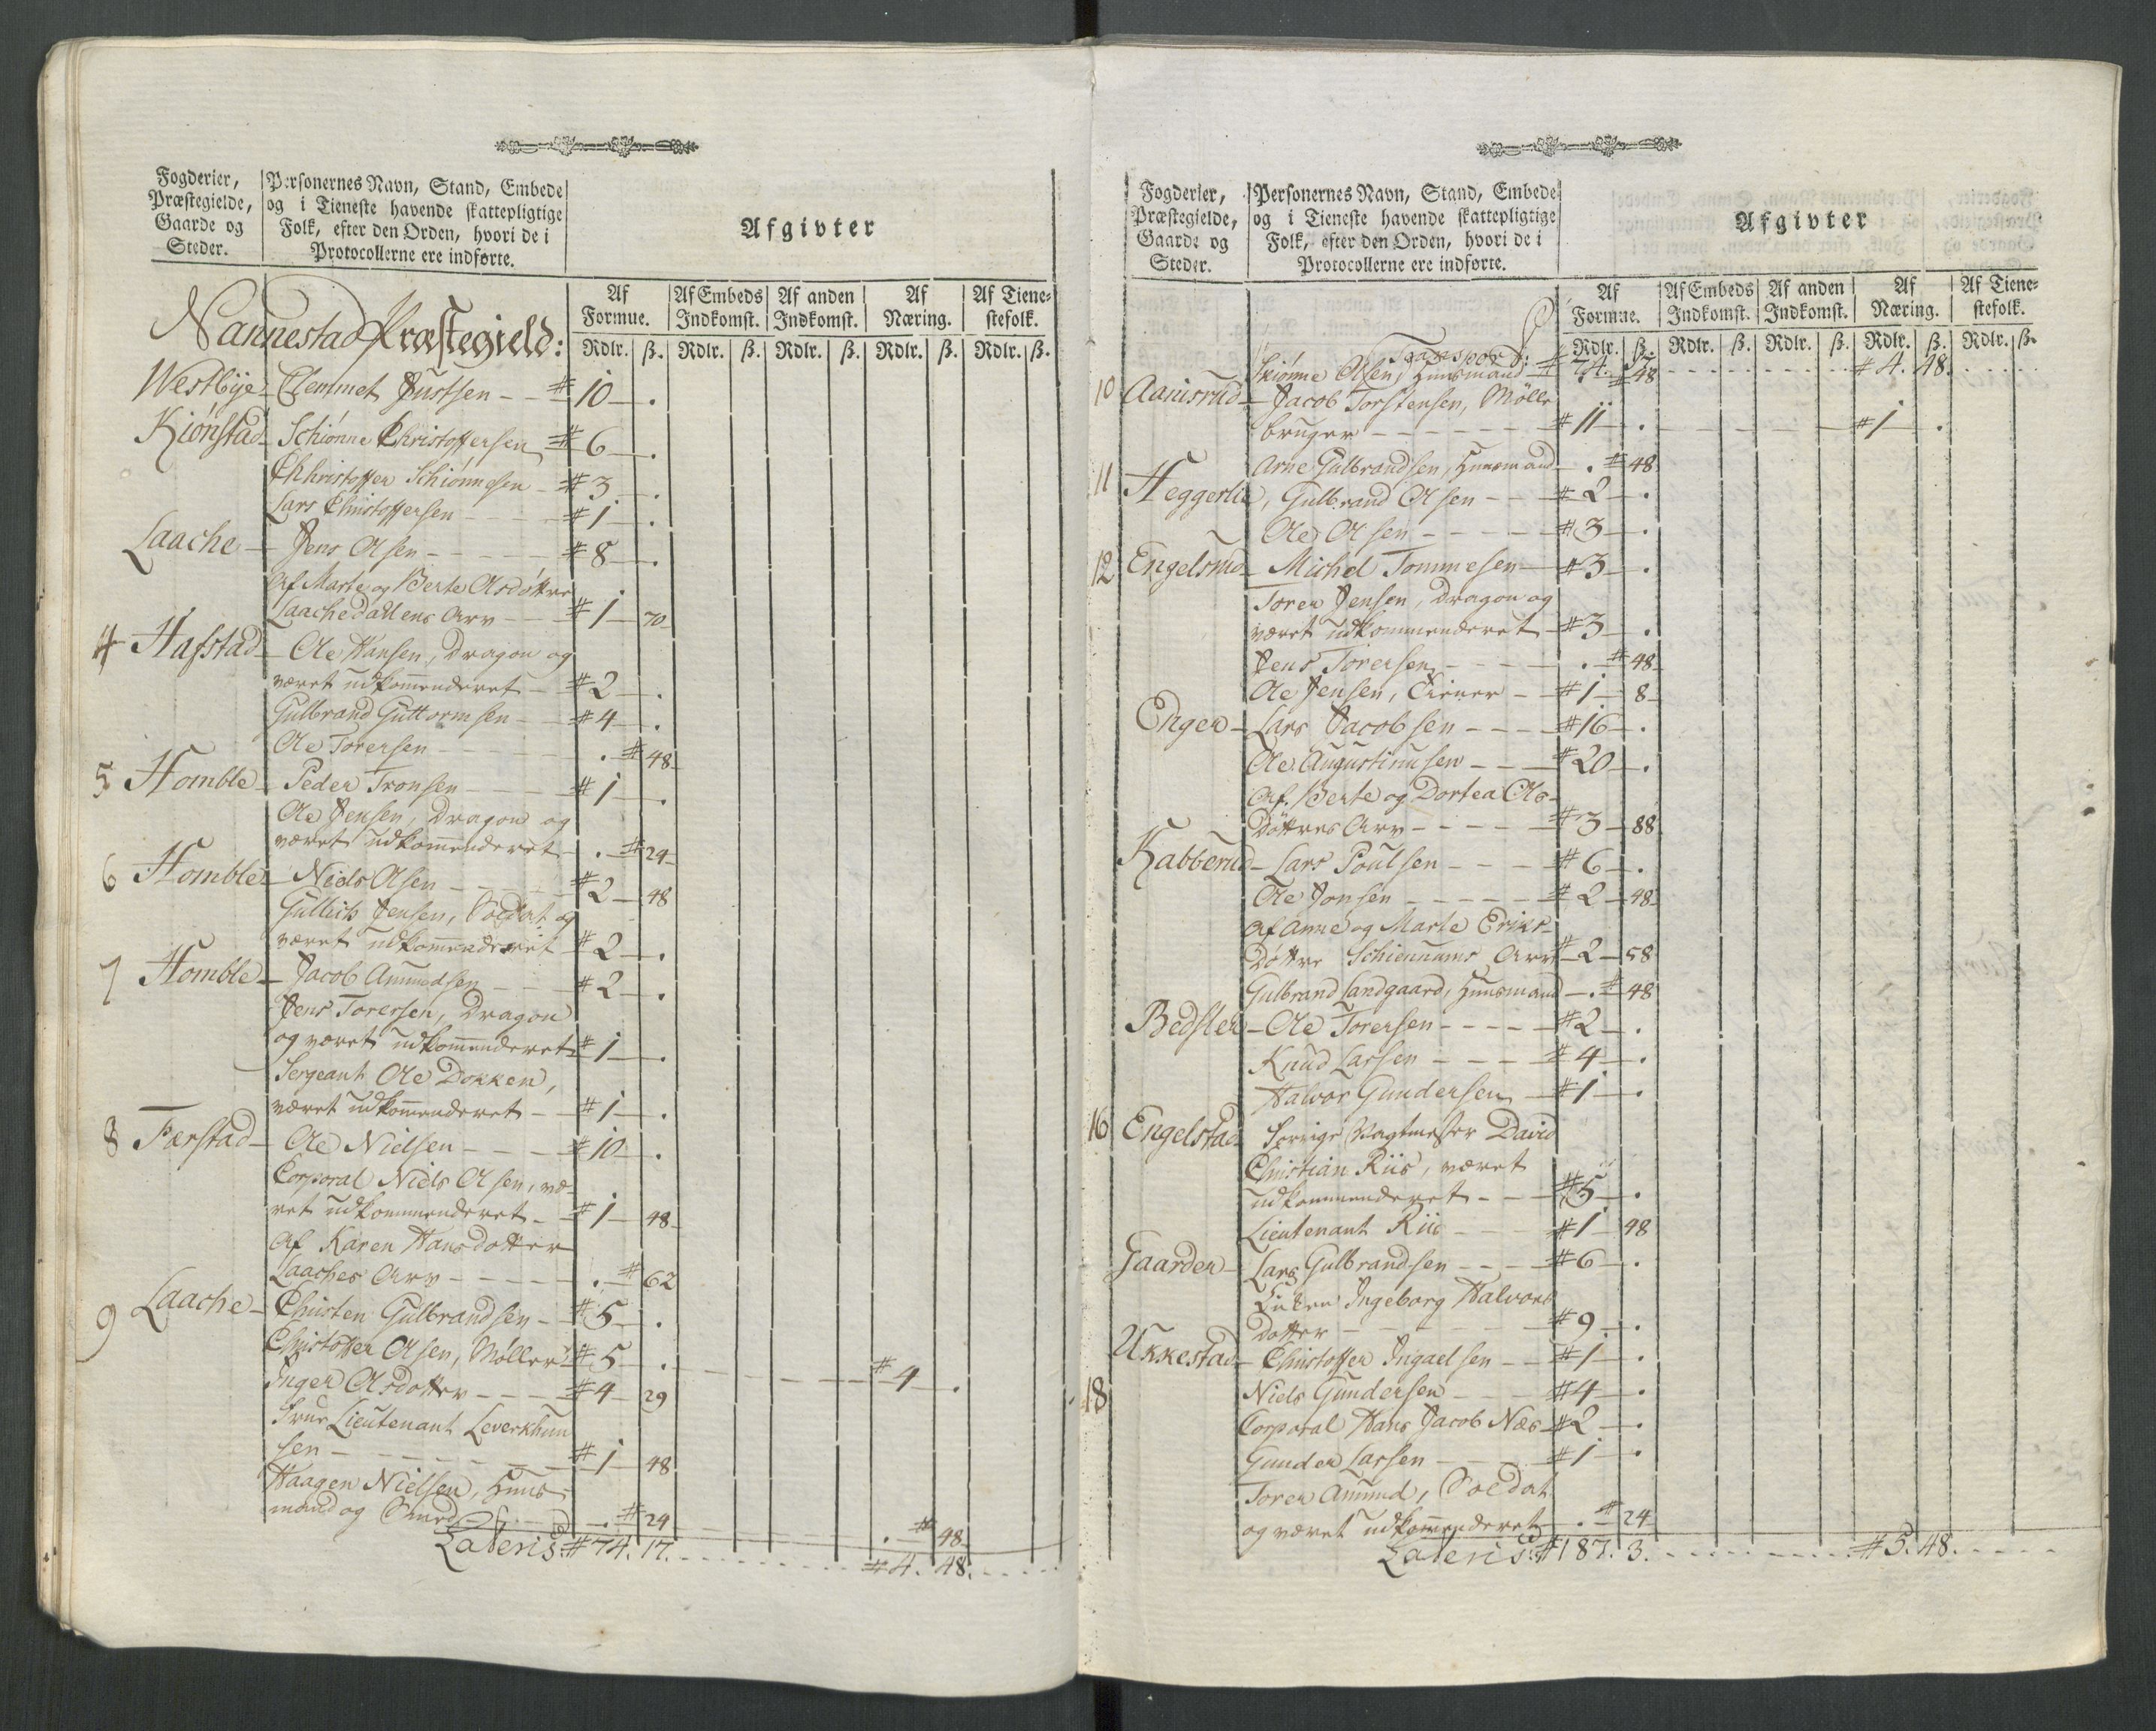 Fogderier,
Præstegielde,
Gaarde og
Steder.
Personernes Navn, Stand, Embede
og i Tieneste havende skattepligtige
Folk, efter den Orden, hvori de i
Protocollerne ere indførte.
Afgivter
Af Formue.
Af Embeds Indkomst.
Af anden Indkomst.
Af Næring.
Af Tiene-stefolk.
Rdlr. ß. Rdlr. ß. Rdlr. ß. Rdlr. ß. Rdlr. ß.
Nannestad Præstegield:
Westbye Clemmet Justsen # 10 .
Kiønstad Schiønne Christoffersen # 6 .
Chhristoffer Schiønnesen # 3 .
Lars Christoffersen # 1 .
Laache Jens Olsen # 8 .
Af Marte og Berte Olsdøttre
Laachedallens Arv # 1 70
4 Hafstad Ole Hansen, Dragon og
været udkommenderet # 2 .
Gulbrand Guttormsen # 4 .
Ole Torersen . # 48
5 Homble Peder Tronsen # 1 .
Ole Jensen, Dragon og
været udkommenderet . # 24
6 Homble Niels Olsen # 2 48
Gullich Jensen, Soldat og
været udkommenderet # 2 .
7 Homble Jacob Amundsen # 2 .
Jens Torersen, Dragon
og været udkommenderet # 1 .
Sergeant Ole Dokken,
været udkommenderet # 1 .
8 Færstad Ole Nielsen # 10 .
Corporal Niels Olsen, væ-
ret udkommenderet # 1 48
Af Karen Hansdotter
Laaches Arv . # 62
9 Laache Christen Gulbrandsen # 5 .
Christoffer Olsen, Møller # 5 . # 4 .
Inger Olsdotter # 4 29
Frue Lieutenant Leverkhun
sen # 1 48
Haagen Nielsen, Huus-
mand og Smed . # 24 . # 48
Lateris: # 74. 17. # 4. 48.
Fogderier,
Præstegielde,
Gaarde og
Steder.
Personernes Navn, Stand, Embede
og i Tieneste havende skattepligtige
Folk, efter den Orden, hvori de i
Protocollerne ere indførte.
Afgivter
Af Formue.
Af Embeds Indkomst.
Af anden Indkomst.
Af Næring.
Af Tiene-stefolk.
Rdlr. ß. Rdlr. ß. Rdlr. ß. Rdlr. ß. Rdlr. ß.
Transport: # 74. 17 # 4. 48.
Skiønne Olsen, Huusmand # 48
10 Aamisrud Jacob Torstensen, Mølle
bruger # 11 . # 1 .
Arne Gulbrandsen, Huusmand . # 48
11 Heggerlie, Gulbrand Olsen # 2 .
Ole Olsen # 3 .
12 Engelsrud Michel Tommesen # 3 .
Torer Jensen, Dragon og
været udkommenderet # 3 .
Jens Torersen . # 48
Ole Jensen, Tiener # 1 8
Enger Lars Jacobsen # 16 .
Ole Augustinusen # 20 .
Af Berte og Dortea Ols-
døttres Arv # 3 88
Kabberud Lars Poulsen # 6 .
Ole Jonsen # 2 48
Af Anne og Marte Eriks-
døttre Schiennums Arv # 2 58
Gulbrand Landgaard, Huusmand . # 48
Bedsler Ole Torersen # 2 .
Knud Larsen # 4 .
Halvor Gundersen # 1 .
16 Engelstad Forrige Vagtmester David
Christian Riis, været
udkommenderet # 5 .
Lieutenant Riis # 1 48
Gaarder Lars Gulbrandsen # 6 .
Enken Ingeborg Halvors
dotter # 9 .
Ukkestad Christoffer Ingaelsen # 1 .
18 Niels Gundersen # 4 .
Corporal Hans Jacob Næs # 2 .
Gunder Larsen # 1 .
Torer Amund, Soldat
og været udkommenderet . # 24
Lateris: # 187. 3. # 5. 48.